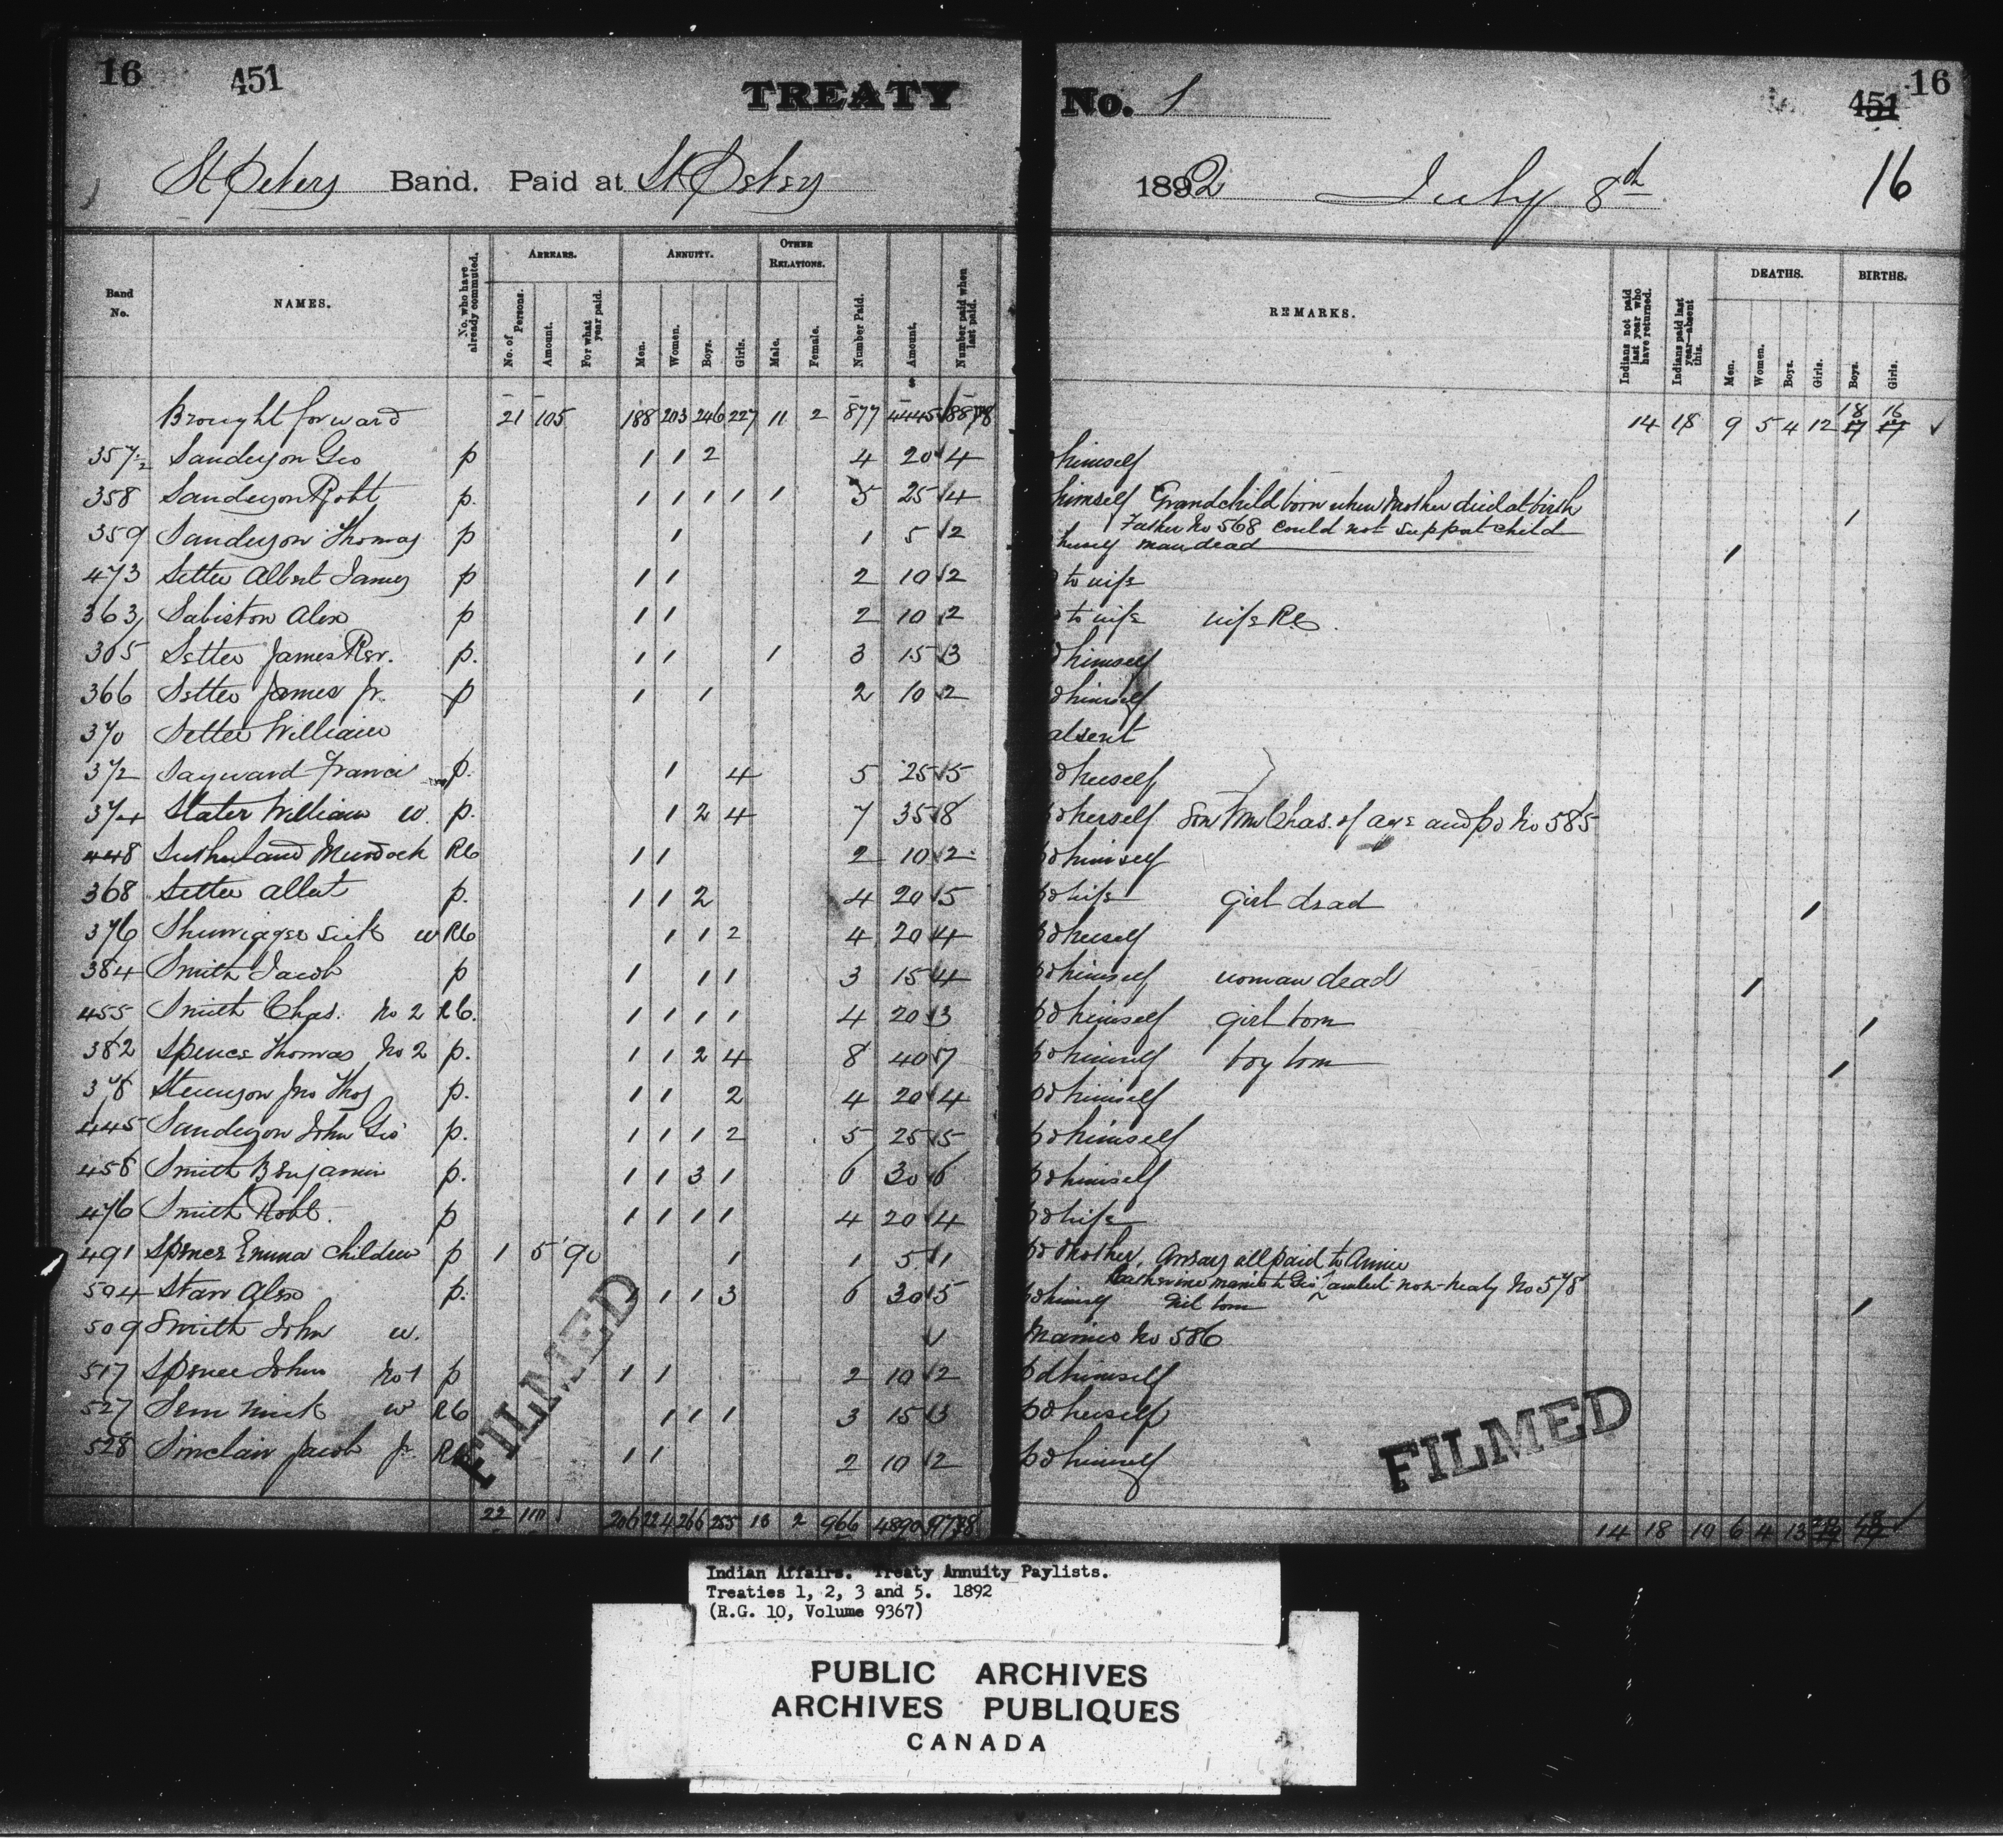 16 451 TREATY No. 1 451 16
St Peters Band. Paid at St Peters 1892 July 8th 16
Band No. NAMES. No. who have already commuted. ARREARS. No. of Persons. Amount. For what year paid. ANNUITY. Men. Women. Boys. Girls. OTHER RELATIONS. Male. Female. Number Paid. Amount. Number paid when last paid. REMARKS. Indians not paid last year who have returned. Indians paid last year—absent this. DEATHS. Men. Women. Boys. Girls. BIRTHS. Boys. Girls.
Brought forward 21 105 188 203 246 227 11 2 877 4445 14 18 9 5 4 12 18 17 16 17 ✓
357½ Sanderson Geo p 1 1 2 4 20 ✓ 4 himself
358 Sanderson Robt p. 1 1 1 1 1 5 25 ✓ 4 himself Grandchild born when Mother died at birth 1
Father No 568 could not support child
359 Sanderson Thomas p 1 1 5 ✓ 2 herself man dead 1
473 Settee Albert James p 1 1 2 10 ✓ 2 to wife
363 Sabiston Alex p 1 1 2 10 ✓ 2 to wife wife RC.
365 Settee James Rev. p. 1 1 1 3 15 ✓ 3 himself
366 Settee James Jr. p 1 1 2 10 ✓ 2 himself
370 Settee William absent
372 Sayward p. 1 4 5 25 ✓ 5 herself
374 Slater William w. p. 1 2 4 7 35 ✓ 8 herself Son Wm Chas. of age and pd No 585
448 Sutherland Murdock RC 1 1 2 10 ✓ 2 pd himself
368 Settee Albert p. 1 1 2 4 20 ✓ 5 pd wife girl dead 1
376 w RC 1 1 2 4 20 ✓ 4 pd herself
384 Smith Jacob p 1 1 1 3 15 ✓ 4 pd himself woman dead 1
455 Smith Chas. No 2 RC. 1 1 1 1 4 20 ✓ 3 pd himself girl born 1
382 Spence Thomas No 2 p. 1 1 2 4 8 40 ✓ 7 pd himself boy born 1
378 Stevenson Jno Thos p. 1 1 2 4 20 ✓ 4 pd himself
445 Sanderson John Geo p. 1 1 1 2 5 25 ✓ 5 pd himself
458 Smith Benjamin p. 1 1 3 1 6 30 ✓ 6 pd himself
476 Smith Robt. p 1 1 1 1 4 20 ✓ 4 pd wife
491 Spence Emma children p 1 5 90 1 1 5 ✓ 1 pd Mother, Arrears all paid to Annie
Catherine married to Geo non-treaty No 578
504 Starr Alex p. 1 1 1 3 6 30 ✓ 5 pd himself girl born 1
509 Smith John w. ✓ Married No 586
517 Spence John No 1 p 1 1 2 10 ✓ 2 pd himself
527 w RC 1 1 1 3 15 ✓ 3 pd herself
528 Sinclair Jacob Jr. RC 1 1 2 10 ✓ 2 pd himself
FILMED FILMED
22 110 206 224 266 255 13 2 966 4890 14 18 10 6 4 13 ✓
Indian Affairs. Treaty Annuity Paylists.
Treaties 1, 2, 3 and 5. 1892
(R.G. 10, Volume 9367)
PUBLIC ARCHIVES
ARCHIVES PUBLIQUES
CANADA